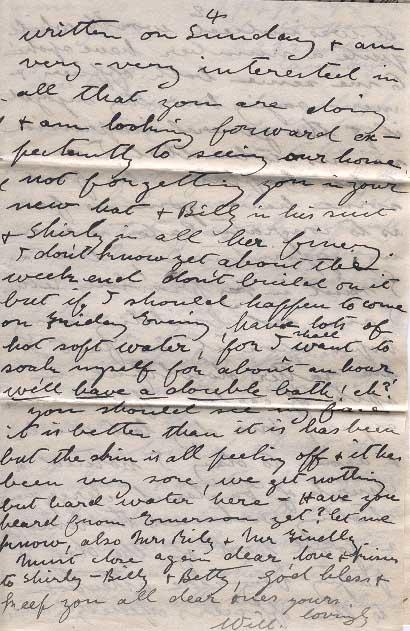 4
written on Sunday & am
very-very interested in
all that you are doing
& am looking forward ex-
pectantly to seeing our home,
not forgetting you in your
new hat & Billy in his suit
& Shirly in all her finery.
I don't know yet about the
weekend don't build on it
but if I should happen to come
on Friday Evening have lots of
hot soft water, for I shall want to
soak myself for about an hour
will have a double bath, eh?
You should see my face
it is better than it is has been
but the skin is all peeling off & it has
been very sore, we get nothing
but hard water here - Have you
heard from Emerson yet? let me
know, also Mrs & Mr
Must close again dear, love &
to Shirly - Billy & Betty, god bless &
keep you all dear yours
lovingly
Will.